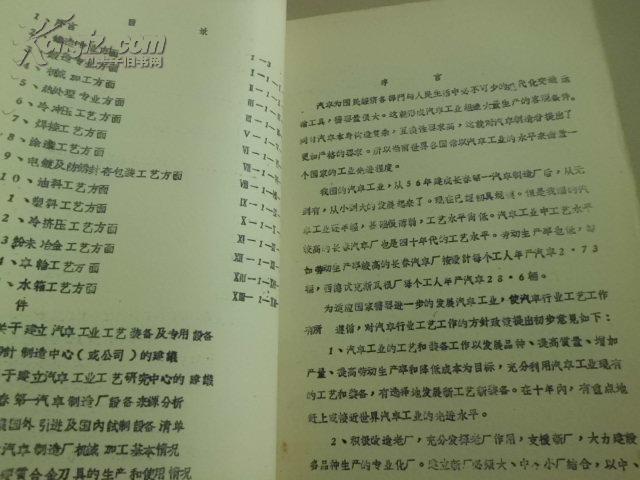 目 录
1、序言
4、机械加工方面
5、热处理专业方面
6、冷冲压工艺方面
7、焊接工艺方面
8、涂漆工艺方面
9、电镀及防锈封存包装工艺方面
10、油料工艺方面
1、塑料工艺方面
2、冷挤压工艺方面
3粉末冶金工艺方面
4、车轮工艺方面
、水箱工艺方面
件
关于建立汽车工业工艺装备及专用设备
制造中心(或公司)的建议
于建立汽车工业工艺研究中心的建议
春第一汽车制造厂设备来源分析
国外引进及国内试制设备清单
汽车制造厂机械加工基本情况
硬质合金刀具的生产和使用情况
I—3
序 言
汽车为国民经济各部门与人民生活中必不可少的现代化交通运
输工具,需要量很大。这就形成汽车工业组织大量生产的客观条件。
同时汽车本身构造复杂,互换性要求高,这就对汽车制造者提出了
更加严格的要求。所以当前世界各国常以汽车工业的水平来衡量一
个国家的工业先进程度。
我国的汽车工业,从56年建成长春第一汽车制造厂后,从无
到有,从小到大的发展起来了。现在已经初具规模。但是我国的汽
车工业还年幼,基础很薄弱,工艺水平尚低。汽车工业中工艺水平
较高的长春汽车厂也是四十年代的工艺水平。劳动生产率也低,
如劳动生产率较高的长春汽车厂按设计每个工人年产汽车2·73
辆,西德沃克斯瓦根厂每个工人年产汽车28·6辆。
为适应国家需要进一步的发展汽车工业,使汽车行业工艺工作
有所遵循,对汽车行业工艺工作的方针政策提出初步意见如下:
1、汽车工业的工艺和装备工作以发展品种、提高质量、增加
产量、提高劳动生产率和降低成本为目标,充分利用汽车工业现有
的工艺和装备,有选择地发展新工艺新装备。在十年内,有重点地
赶上或接近世界汽车工业的先进水平。
2、积极改造老厂,充分发挥老厂作用,支援新厂,大力建设
多品种生产的专业化厂。建立新厂必须大、中、小厂结合,以中、